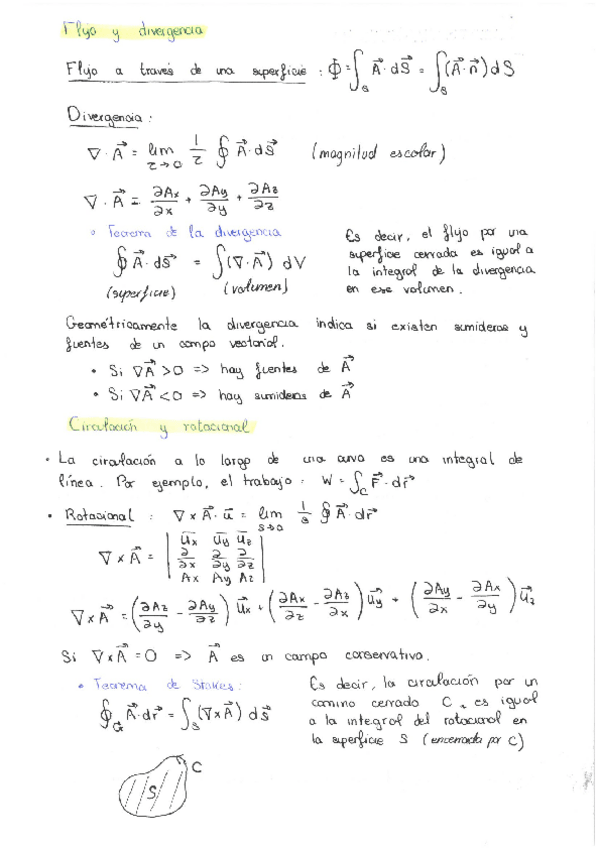 Flujo y divergencia
Flujo a través de una superficie : Φ = ∫_S A⃗·dS⃗ = ∫_S (A⃗·n⃗) dS
Divergencia :
∇·A⃗ = lim_{τ→0} 1/τ ∮ A⃗·dS⃗ (magnitud escolar)
∇·A⃗ = ∂Ax/∂x + ∂Ay/∂y + ∂Az/∂z
• Teorema de la divergencia
∮ A⃗·dS⃗ = ∫(∇·A⃗) dV
(superficie) (volumen)
Es decir, el flujo por una
superficie cerrada es igual a
la integral de la divergencia
en ese volumen.
Geométricamente la divergencia indica si existen sumideros y
fuentes de un campo vectorial.
• Si ∇A⃗ > 0 => hay fuentes de A⃗
• Si ∇A⃗ < 0 => hay sumideros de A⃗
Circulación y rotacional
• La circulación a lo largo de una curva es una integral de
línea. Por ejemplo, el trabajo : W = ∫_C F⃗·dr⃗
• Rotacional : ∇×A⃗·u⃗ = lim_{s→0} 1/s ∮ A⃗·dr⃗
∇×A⃗ = | u⃗x u⃗y u⃗z |
| ∂/∂x ∂/∂y ∂/∂z |
| Ax Ay Az |
∇×A⃗ = (∂Az/∂y - ∂Ay/∂z) u⃗x + (∂Ax/∂z - ∂Az/∂x) u⃗y + (∂Ay/∂x - ∂Ax/∂y) u⃗z
Si ∇×A⃗ = 0 => A⃗ es un campo conservativo.
• Teorema de Stokes:
∮_C A⃗·dr⃗ = ∫_S (∇×A⃗) dS⃗
Es decir, la circulación por un
camino cerrado C, es igual
a la integral del rotacional en
la superficie S (encerrada por C)
C
S